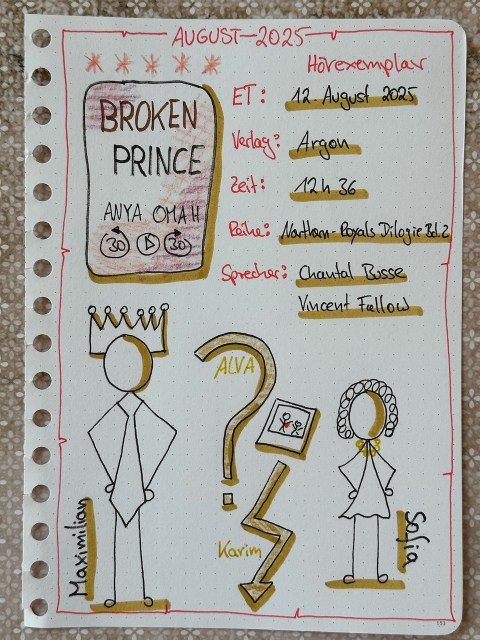 AUGUST-2025
Hörexemplar
BROKEN
PRINCE
ANYA OMAH
30 30
ET: 12. August 2025
Verlag: Argon
Zeit: 12h 36
Reihe: Northern-Royals Dilogie Bd. 2
Sprecher: Chantal Busse
Vincent Fallow
ALVA
Karim
Maximilian
Sofia
153